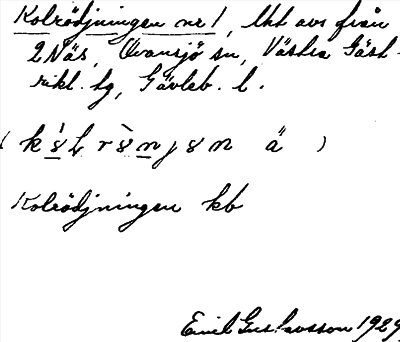 Kolrödjningen nr 1, lht avs från
2 Näs, Ovansjö sn, Västra Gäst-
rikl. hg, Gävleb. l.
Kolrödjningen kb
Emil Gustavsson 1929